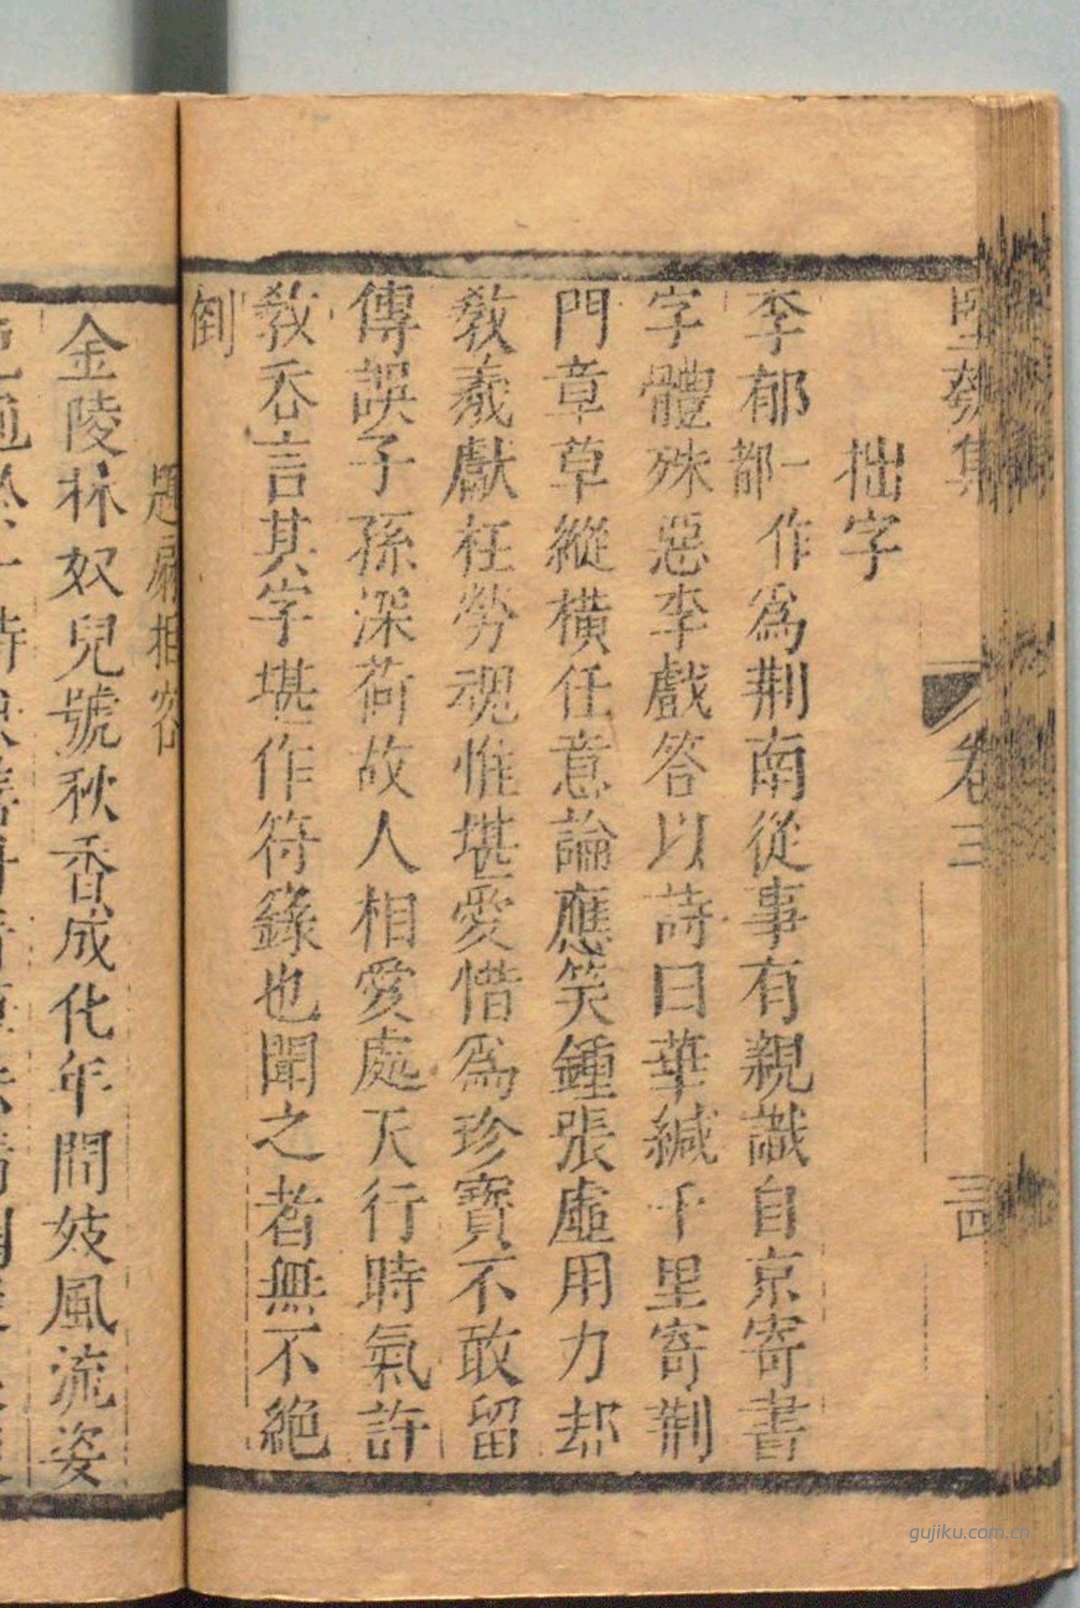 卷三
三四
拙字
李郁一作都為荆南從事有親識自京寄書
字體殊惡李戲答以詩曰華緘千里寄荆
門章草縱橫任意論應笑鍾張虛用力却
教羲獻枉勞魂惟堪愛惜為珍寶不敢留
傳誤子孫深荷故人相愛處天行時氣許
教吞言其字堪作符籙也聞之者無不絶
倒
題扇相容
金陵林奴兒號秋香成化年間妓風流姿
gujiku.com.cn